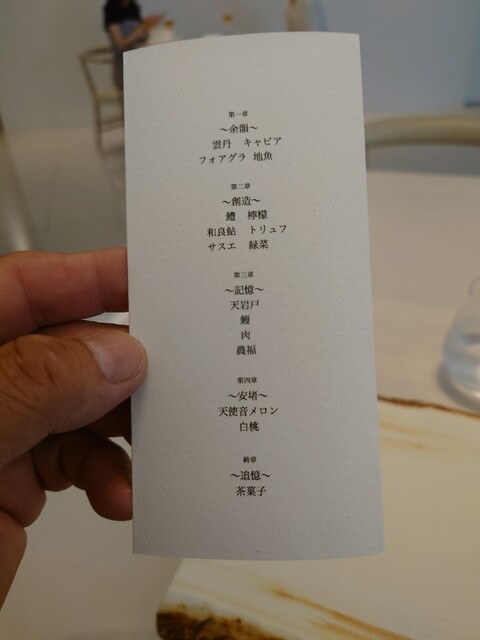 第一章
～余韻～
雲丹 キャビア
フォアグラ 地魚
第二章
～創造～
鱧 檸檬
和良鮎 トリュフ
サスエ 緑菜
第三章
～記憶～
天岩戸
鰻
肉
農福
第四章
～安堵～
天使音メロン
白桃
終章
～追憶～
茶菓子